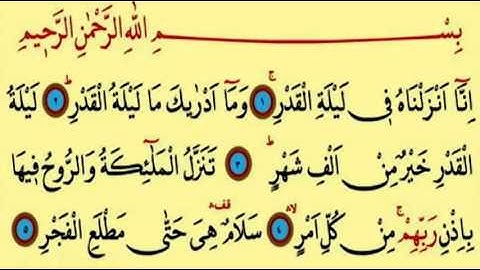 بِسْمِ اللّٰهِ الرَّحْمٰنِ الرَّح۪يمِ
اِنَّٓا اَنْزَلْنَاهُ ف۪ي لَيْلَةِ الْقَدْرِۚ ﴿١﴾ وَمَٓا اَدْرٰيكَ مَا لَيْلَةُ الْقَدْرِۜ ﴿٢﴾ لَيْلَةُ
الْقَدْرِ خَيْرٌ مِنْ اَلْفِ شَهْرٍۜ ﴿٣﴾ تَنَزَّلُ الْمَلٰٓئِكَةُ وَالرُّوحُ ف۪يهَا
بِاِذْنِ رَبِّهِمْۚ مِنْ كُلِّ اَمْرٍۙ ﴿٤﴾ سَلَامٌ۠ هِيَ حَتّٰى مَطْلَعِ الْفَجْرِ ﴿٥﴾